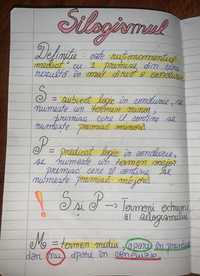 Silogismul
Definiție - este raționamentul
mediat cu 2 premise din care
rezultă în mod direct o concluzie
S = subiect logic în concluzie, se
numește un termen minor
premisa care îl conține se
numește premisă minoră
P = predicat logic în concluzie,
se numește un termen major
premisa care îl conține se
numește premisă majoră
! S și P → Termeni extremi
ai silogismului
M = termen mediu, apare în premise
dar nu apare în concluzie